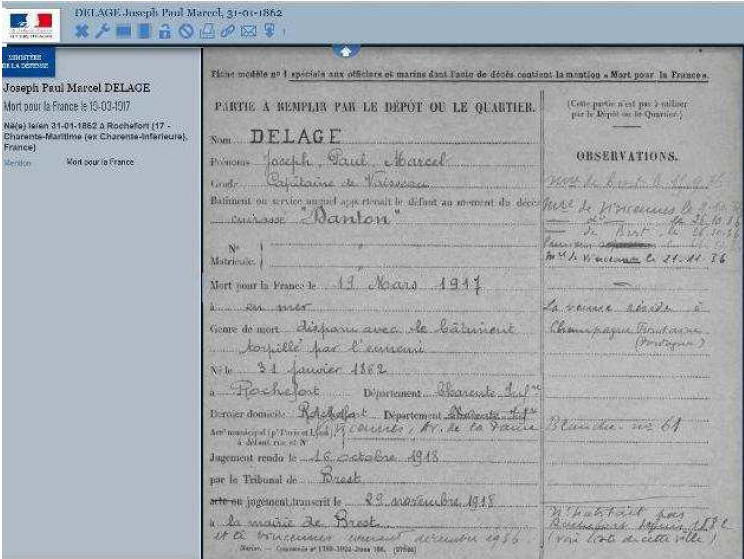 DELAGE Joseph Paul Marcel, 31-01-1862
MINISTÈRE
DE LA DÉFENSE
Joseph Paul Marcel DELAGE
Mort pour la France le 19-03-1917
Né(e) le/en 31-01-1862 à Rochefort (17 -
Charente-Maritime (ex Charente-Inférieure),
France)
Mention Mort pour la France
Fiche modèle nº 1 spéciale aux officiers et marins dont l'acte de décès contient la mention « Mort pour la France ».
PARTIE A REMPLIR PAR LE DÉPÔT OU LE QUARTIER.
(Cette partie n'est pas à utiliser
par le Dépôt ou le Quartier.)
Nom DELAGE
Prénoms Joseph, Paul, Marcel
OBSERVATIONS.
Grade Capitaine de Vaisseau
Bâtiment ou service auquel appartenait le défunt au moment du décès
cuirassé "Danton"
Mie de Vincennes le
de Brest, le 26.10.36
Nº
Matricule.
Mie de Vincennes le 21.11.36
Mort pour la France le 19 Mars 1917
à en mer
La veuve réside à
Genre de mort disparu avec le bâtiment
Champagne Fontaine
(Dordogne)
torpillé par l'ennemi
Né le 31 janvier 1862
à Rochefort Département Charente Infre
Dernier domicile Rochefort Département Charente Infre
Arrt municipal (pr Paris et Lyon),
à défaut rue et Nº
à Vincennes, Av. de la Dame Blanche nº 61
Jugement rendu le 16 octobre 1918
par le Tribunal de Brest
acte ou jugement transcrit le 29 novembre 1918
à la mairie de Brest
N'habitait pas
Rochefort depuis 1882
(voir liste de cette ville)
et à Vincennes courant décembre 1936